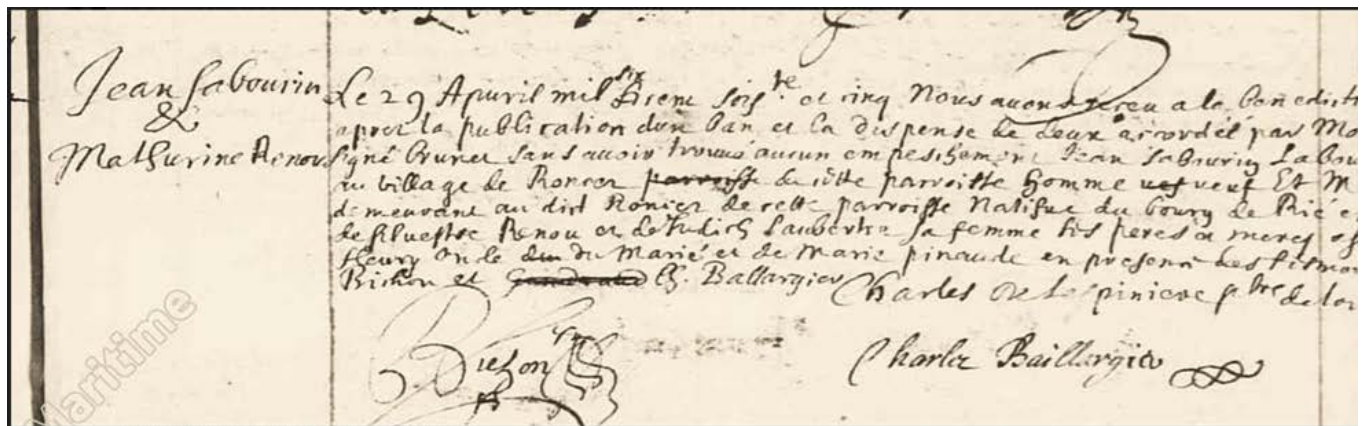 Jean Sabourin
&
Mathurine Renou
Le 29 Apvril mil six cent soix.te et cinq Nous avons receu a la benedicti
apres la publication dun ban et la dispense de deux accordée par Mo
signé Brunet sans avoir trouvé aucun empeschement Jean Sabourin Labou
au village de Roncer parroisse de cette parroisse homme vef veuf Et M
demeurant au dict Roncer de cette parroisse Natifue du bourg de Rié e
de Siluestre Renou et de Judich Laubertre sa femme ses peres et meres
fleury oncle dun du Marié et de Marie pinaude en presence des tesmo
Bichon et Ch. Ballargiev Charles De Lespiniere pbre de
Bichon
Charles Baillargiev
Maritime